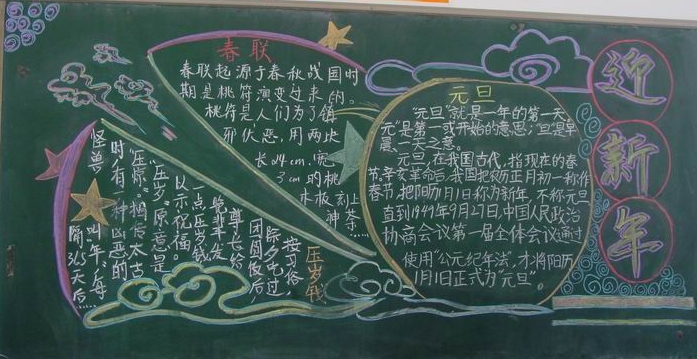 春联
春联起源于春秋战国时
期是桃符演变过来的。
桃符是人们为了镇
邪伏恶,用两块
长24cm、宽
3cm的桃
木板刻上
神荼……
元旦
"元旦"就是一年的第一天。
"元"是第一或开始的意思;"旦"是早
晨、一天之意。
元旦,在我国古代,指现在的春
节,辛亥革命后,我国把农历正月初一称作
春节,把阳历1月1日称为新年,不称元旦
直到1949年9月27日,中国人民政治
协商会议第一届全体会议通过
使用"公元纪年法",才将阳历
1月1日正式为"元旦"。
迎
新
年
压岁钱
按习俗
除夕吃过
团圆饭后,
尊长给
晚辈发
一点压岁钱
以示祝福。
"压岁"原意是
"压惊"。相传太古
时,有一种凶恶的
怪兽
叫"年",每
隔365天后……